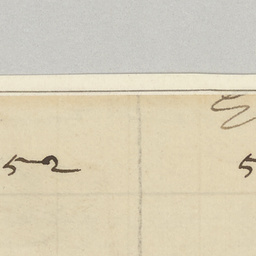 52 5